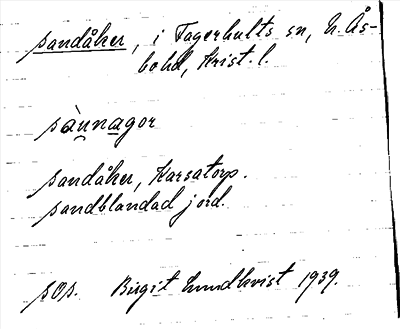 sandåker, i Fagerhults sn, N. Ås-
bohd, Krist. l.
sàunagor
sandåker, Karsatorp.
sandblandad jord.
sOs. Birgit Lundkvist 1939.